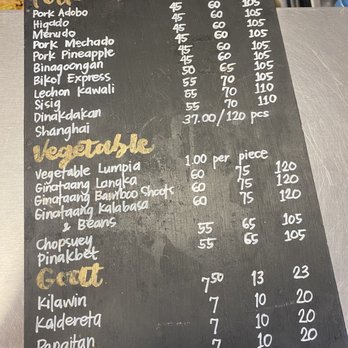 Pork Adobo 45 60 105
Higado 45 60 105
Menudo 45 60 105
Pork Mechado 45 60 105
Pork Pineapple 45 60 105
Binagoongan 45 60 105
Bikol Express 50 65 105
Lechon Kawali 55 70 105
Sisig 55 70 110
Dinakdakan 55 70 110
Shanghai 37.00/120 pcs
Vegetable
Vegetable Lumpia 1.00 per piece
Ginataang Langka 60 75 120
Ginataang Bamboo Shoots 60 75 120
Ginataang Kalabasa 60 75 120
& Beans
Chopsuey 55 65 105
Pinakbet 55 65 105
Goat
Kilawin 7.50 13 23
Kaldereta 7 10 20
Papaitan 7 10 20
7 10 20